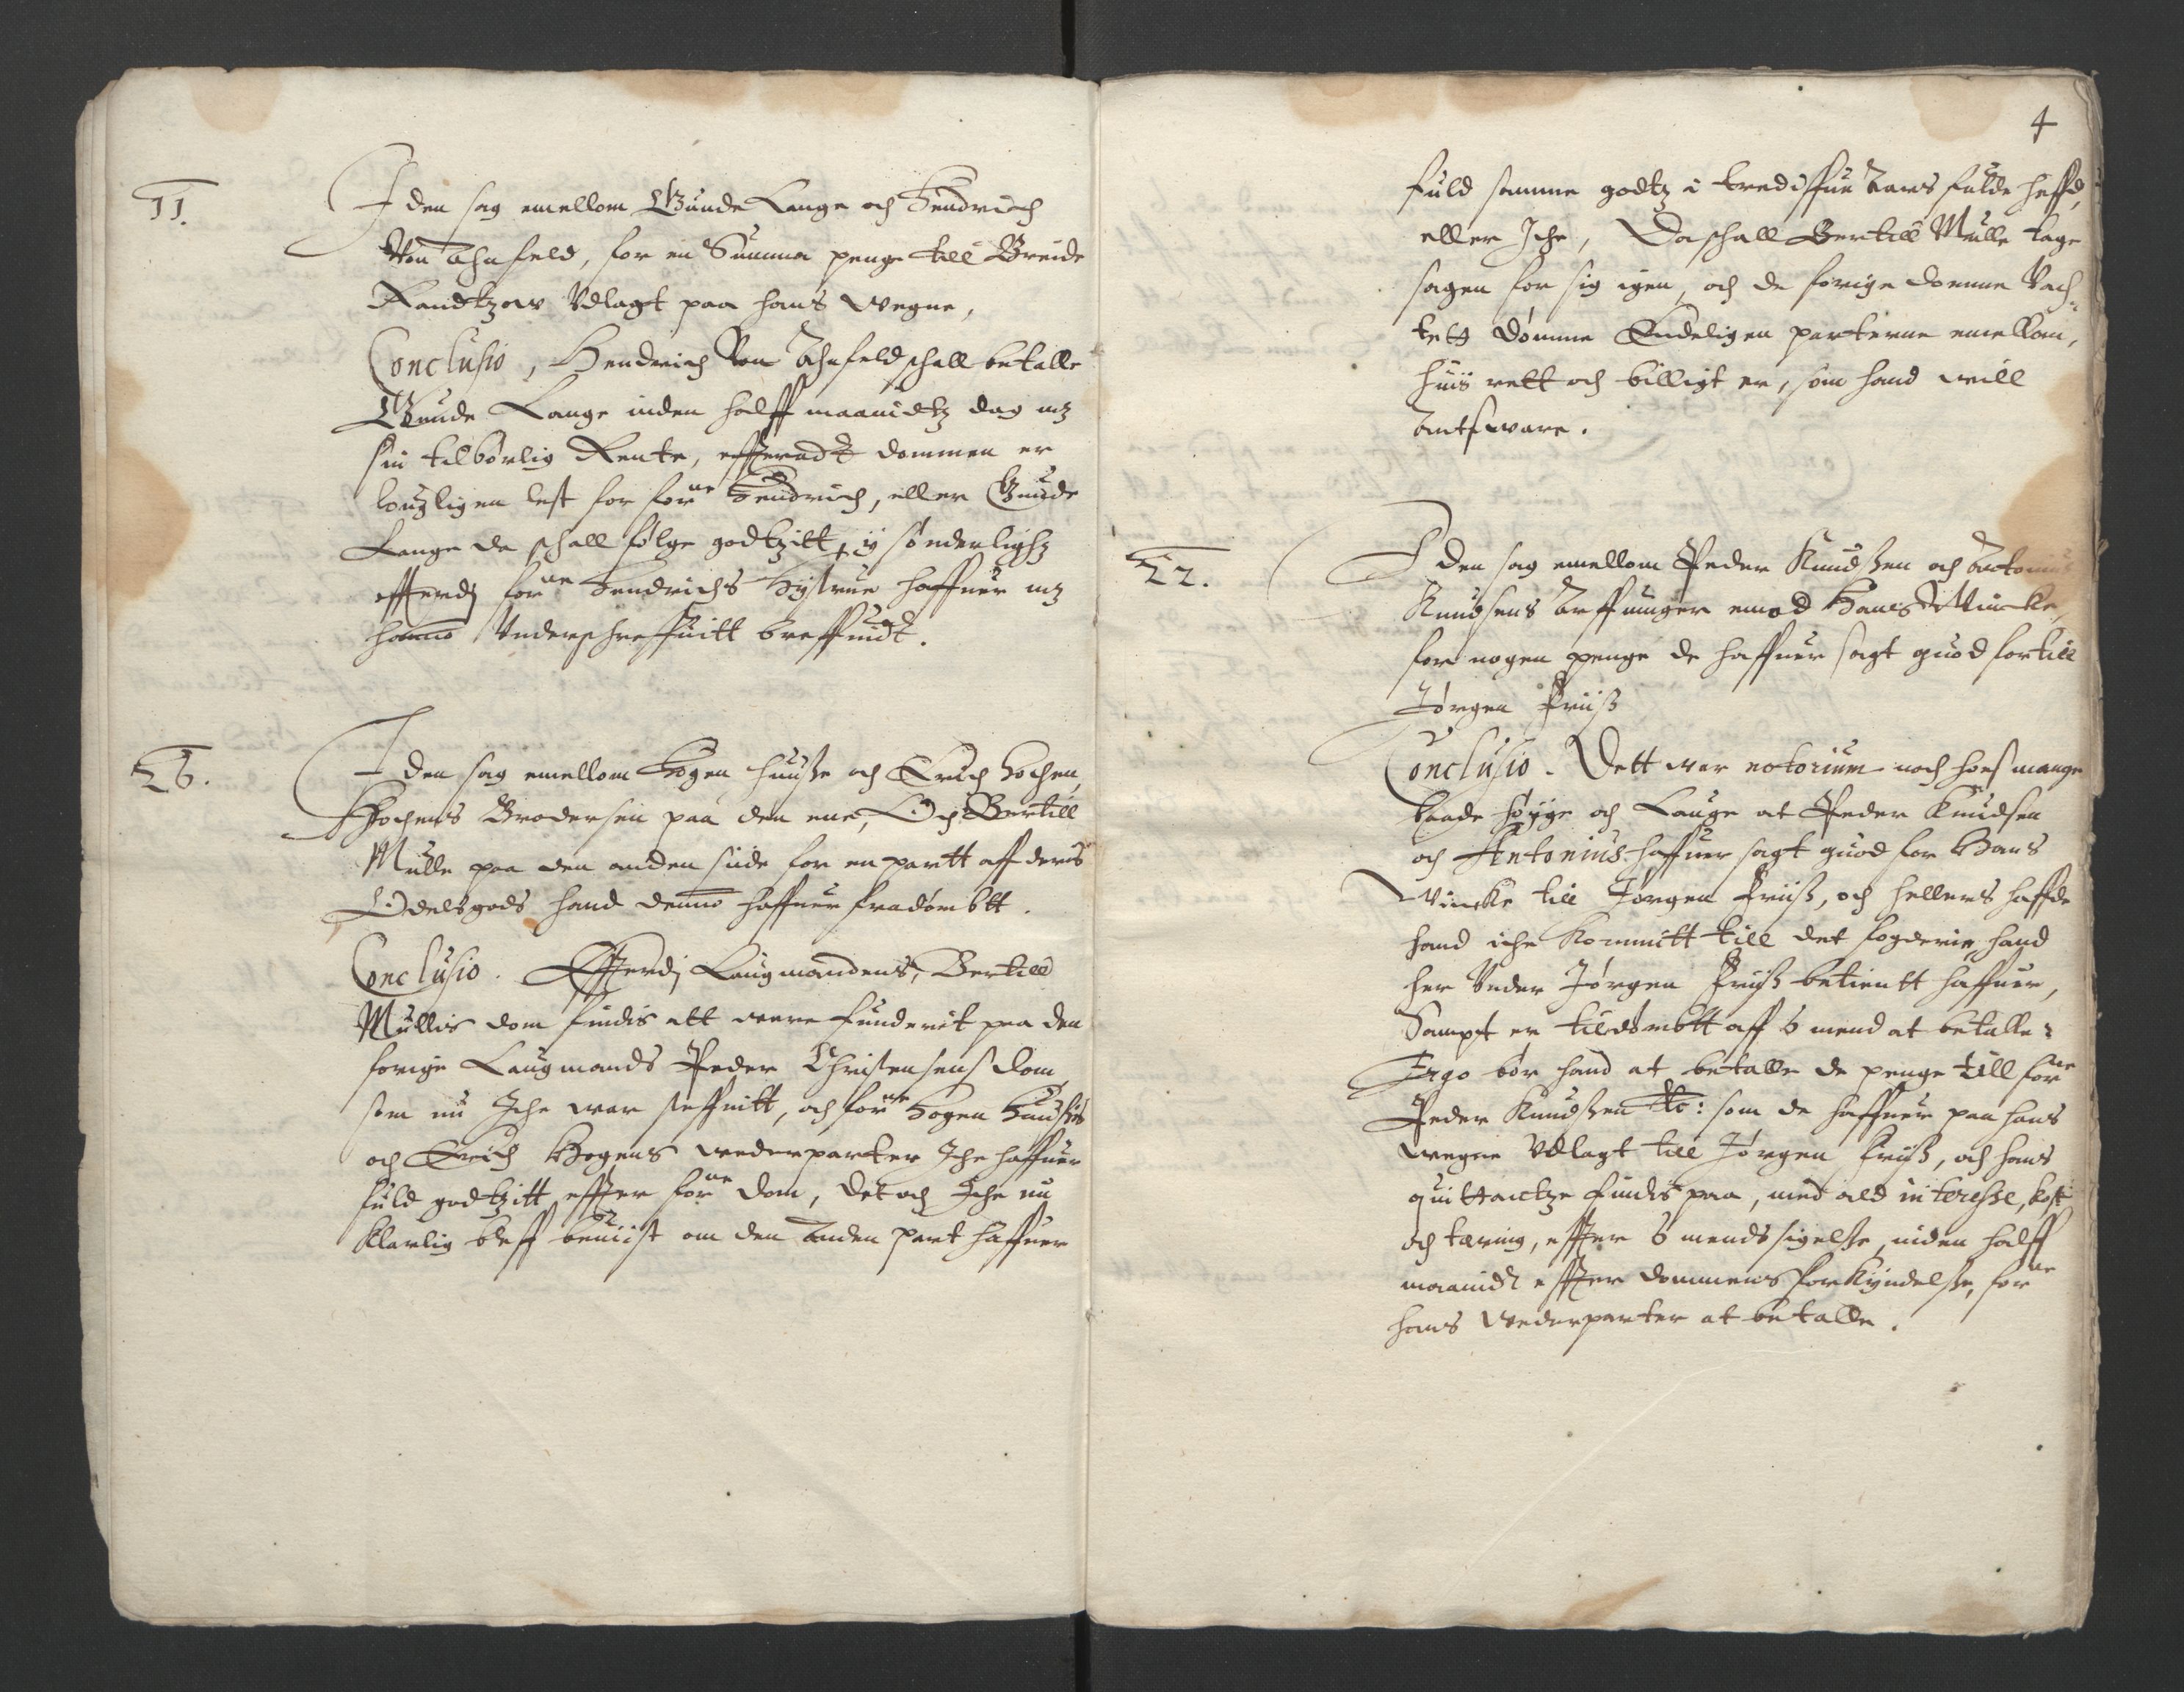 11.
I den sag emellom Gunde Lange och Hendrich
Von Ahnfeld, for en Summa penge till Breide
Randtzow Vdlagt paa hans wegne,
Conclusio, Hendrich Von Ahnfeld schall betalle
Gunde Lange inden halff maanidtz dag mz
sin tilbørlig Rente, effteratt dommen er
louligen lest for forne Hendrich, eller Gunde
Lange da schall følge godtzitt, ij sønderlighz
effterdj forne Hendrichs Hystrue haffuer mz
hanno Vnderschreffuitt breffuidt.
26.
I den sag emellom Hogen Huusse och Erich Hochen,
Hochens Brodersøn paa den ene, Och Bertill
Mulle paa den anden siide for en partt aff deris
Odelsgods hand denno haffuer fradømbtt.
Conclusio. Effterdj Laugmandens, Bertill
Mullis dom findis att were funderit paa den
forige Laugmands Peder Christensens dom
som nu Iche war steffnitt, och forne Hogen Huusses
och Erich Hogens wederparter Iche haffuer
fuld godtzitt effter forne dom, det och Iche nu
klarlig bleff beuiist om den anden part haffuer
4
fuld samme godtz i trediffue aars fulde heffd,
eller Iche, Da schall Bertill Mulle tage
sagen for sig igen, och de forige domme Vach-
tett dømme Endeligen parterne emellom,
huis rett och billigt er, som hand will
antsware.
22.
I den sag emellom Peder Knudssen och Antonius
Knudsens Arffuinger emod Hans Wincke,
for nogen penge de haffuer sagt guod for till
Jørgen Friiss
Conclusio. Dett war notorium noch hoes mange
baade høyge och Lauge at Peder Knudsen
och Antonius haffuer sagt guod for Hans
Wincke till Jørgen Friiss, och hellers haffde
hand iche kommitt till det fogderie, hand
her Vnder Jørgen Friiss betientt haffuer,
Sampt er tildømbtt aff 6 mend at betalle:
Ergo bør hand at betalle de penge till forne
Peder Knudssen etc: som de haffuer paa hans
wegne Vdlagt till Jørgen Friiss, och hans
quittantze findis paa, med ald interesse, kost
och tæring, effter 6 mends sigelsse, inden halff
maanidt effter dommens forkyndelsse, forne
hans wederparter at betalle.